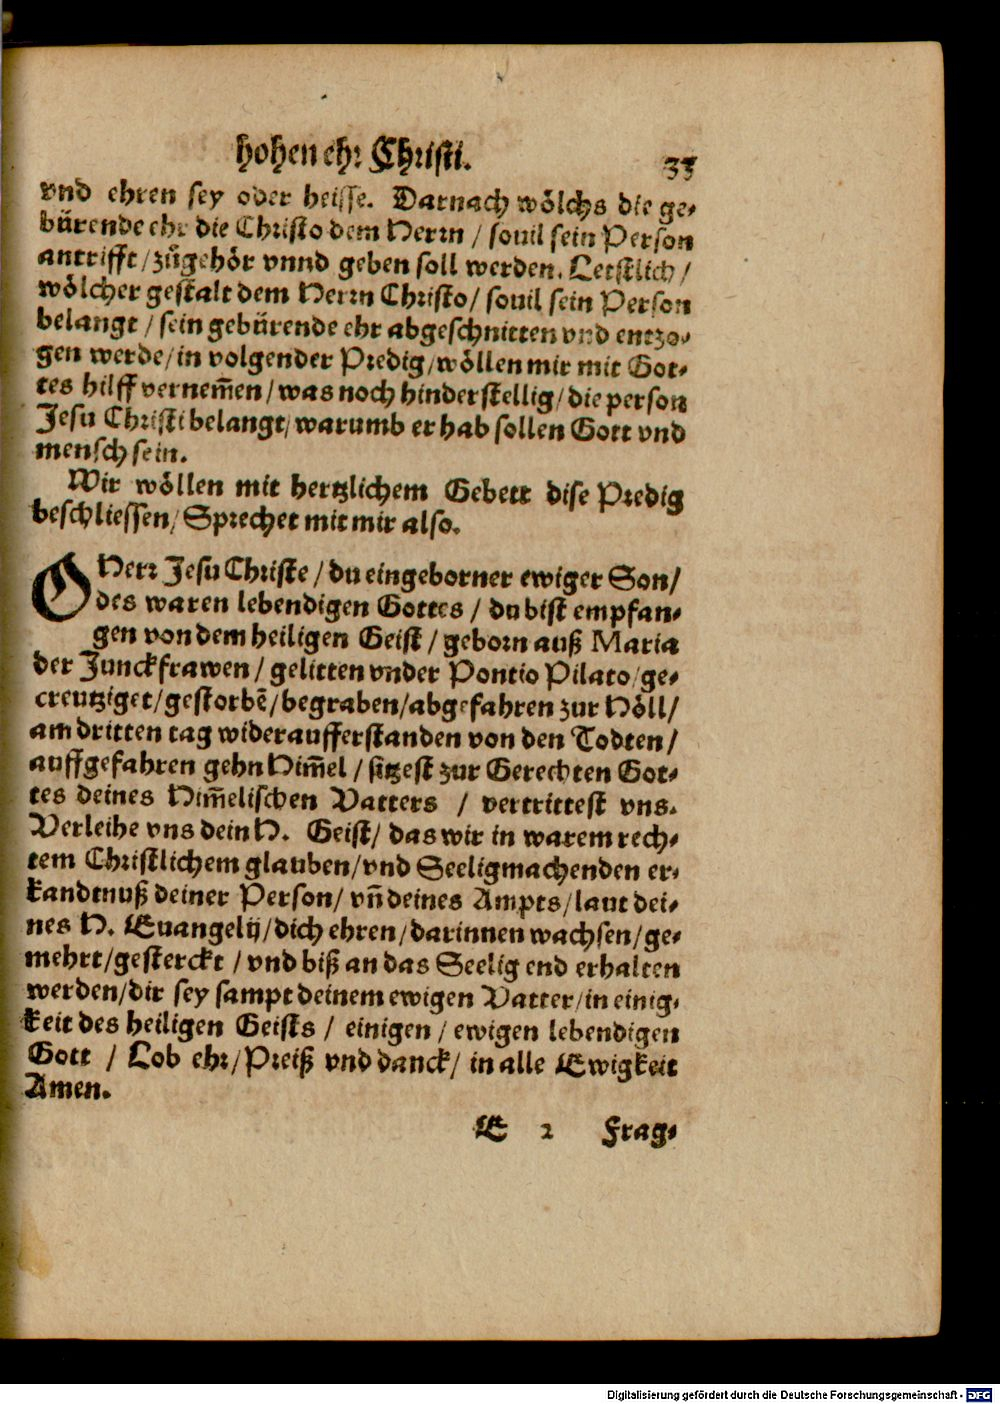 hohen ehr Christi.
35
vnd ehren sey oder heisse. Darnach wölchs die ge-
bürende ehr die Christo dem Herrn / souil sein Person
antrifft / zůgehör vnnd geben soll werden. Letstlich /
wölcher gestalt dem Herrn Christo / souil sein Person
belangt / sein gebürende ehr abgeschnitten vnd entzo-
gen werde / in volgender Predig / wöllen mir mit Got-
tes hilff vernem̃en / was noch hinderstellig / die person
Jesu Christi belangt / warumb er hab sollen Gott vnd
mensch sein.
Wir wöllen mit hertzlichem Gebett dise Predig
beschliessen / Sprechet mit mir also.
O Herr Jesu Christe / du eingeborner ewiger Son /
des waren lebendigen Gottes / du bist empfan-
gen von dem heiligen Geist / geborn auß Maria
der Junckfrawen / gelitten vnder Pontio Pilato / ge-
creutziget / gestorbẽ / begraben / abgefahren zur Höll /
am dritten tag wideraufferstanden von den Todten /
auffgefahren gehn Him̃el / sitzest zur Gerechten Got-
tes deines Him̃elischen Vatters / vertrittest vns.
Verleihe vns dein H. Geist / das wir in warem rech-
tem Christlichem glauben / vnd Seeligmachenden er-
kandtnuß deiner Person / vñ deines Ampts / laut dei-
nes H. Euangelij / dich ehren / darinnen wachsen / ge-
mehrt / gesterckt / vnd biß an das Seelig end erhalten
werden / dir sey sampt deinem ewigen Vatter / in einig-
keit des heiligen Geists / einigen / ewigen lebendigen
Gott / Lob ehr / Preiß vnd danck / in alle Ewigkeit
Amen.
E 2 Frag-
Digitalisierung gefördert durch die Deutsche Forschungsgemeinschaft - DFG